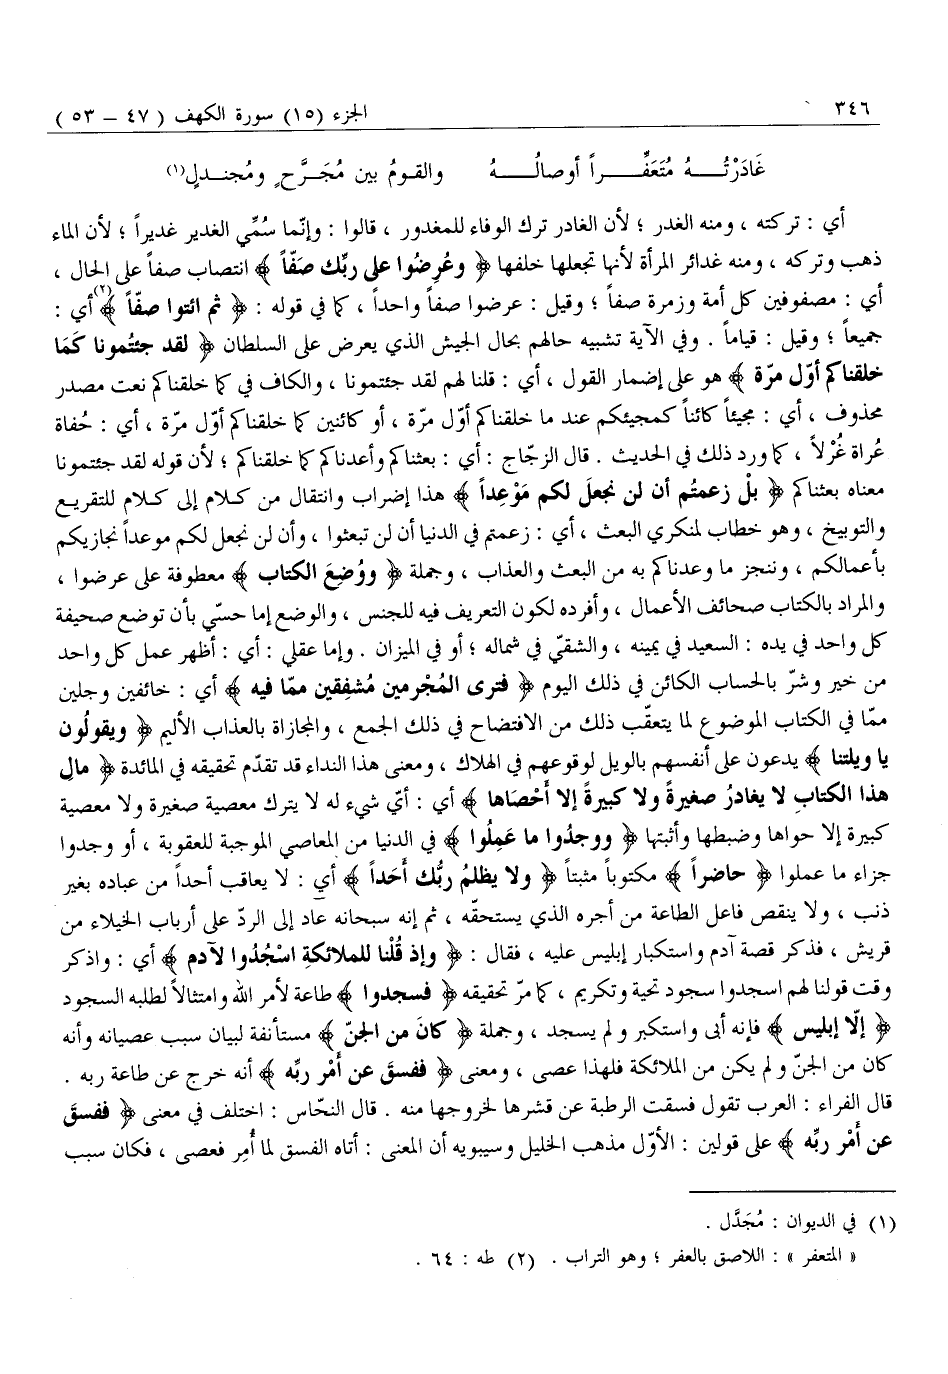 ٣٤٦ الجزء (١٥) سورة الكهف ( ٤٧ – ٥٣ )
غَادَرْتُـــهُ مُتَعَفِّـــراً أوصالُـــهُ والقـومُ بين مُجَـرَّحٍ ومُجنـدلِ(١)
أي : تركته ، ومنه الغدر ؛ لأن الغادر ترك الوفاء للمغدور ، قالوا : وإنّما سُمِّي الغدير غديراً ؛ لأن الماء
ذهب وتركه ، ومنه غدائر المرأة لأنها تجعلها خلفها ﴿ وعُرِضُوا على ربِّك صَفّاً ﴾ انتصاب صفاً على الحال ،
أي : مصفوفين كل أمة وزمرة صفاً ؛ وقيل : عرضوا صفاً واحداً ، كما في قوله : ﴿ ثم ائتوا صفّاً ﴾(٢) أي :
جميعاً ؛ وقيل : قياماً . وفي الآية تشبيه حالهم بحال الجيش الذي يعرض على السلطان ﴿ لقد جئتُمونا كَمَا
خلقناكم أوّل مرّة ﴾ هو على إضمار القول ، أي : قلنا لهم لقد جئتمونا ، والكاف في كما خلقناكم نعت مصدر
محذوف ، أي : مجيئاً كائناً كمجيئكم عند ما خلقناكم أوّل مرّة ، أو كائنين كما خلقناكم أوّل مرّة ، أي : حُفاة
عُراة غُرْلاً ، كما ورد ذلك في الحديث . قال الزجّاج : أي : بعثناكم وأعدناكم كما خلقناكم ؛ لأن قوله لقد جئتمونا
معناه بعثناكم ﴿ بلْ زعمتُم أن لن نجعلَ لكم مَوْعِداً ﴾ هذا إضراب وانتقال من كـلام إلى كـلام للتقريـع
والتوبيخ ، وهو خطاب لمنكري البعث ، أي : زعمتم في الدنيا أن لن تبعثوا ، وأن لن نجعل لكم موعداً نجازيكم
بأعمالكم ، وننجز ما وعدناكم به من البعث والعذاب ، وجملة ﴿ ووُضِعَ الكتاب ﴾ معطوفة على عرضوا ،
والمراد بالكتاب صحائف الأعمال ، وأفرده لكون التعريف فيه للجنس ، والوضع إما حسّي بأن توضع صحيفة
كل واحد في يده : السعيد في يمينه ، والشقيّ في شماله ؛ أو في الميزان . وإما عقلي : أي : أظهر عمل كل واحد
من خير وشرّ بالحساب الكائن في ذلك اليوم ﴿ فترى المُجْرمين مُشفِقين ممّا فيه ﴾ أي : خائفين وجلين
ممّا في الكتاب الموضوع لما يتعقّب ذلك من الافتضاح في ذلك الجمع ، والمجازاة بالعذاب الأليم ﴿ ويقولُون
يا ويلتنا ﴾ يدعون على أنفسهم بالويل لوقوعهم في الهلاك ، ومعنى هذا النداء قد تقدّم تحقيقه في المائدة ﴿ مالِ
هذا الكتابِ لا يغادرُ صغيرةً ولا كبيرةً إلا أَحْصَاها ﴾ أي : أيّ شيء له لا يترك معصية صغيرة ولا معصية
كبيرة إلا حواها وضبطها وأثبتها ﴿ ووجدُوا ما عَمِلُوا ﴾ في الدنيا من المعاصي الموجبة للعقوبة ، أو وجدوا
جزاء ما عملوا ﴿ حاضراً ﴾ مكتوباً مثبتاً ﴿ ولا يظلمُ ربُّك أَحَداً ﴾ أي : لا يعاقب أحداً من عباده بغير
ذنب ، ولا ينقص فاعل الطاعة من أجره الذي يستحقّه ، ثم إنه سبحانه عاد إلى الردّ على أرباب الخيلاء من
قريش ، فذكر قصة آدم واستكبار إبليس عليه ، فقال : ﴿ وإذ قُلْنا للملائكةِ اسْجُدُوا لآدم ﴾ أي : واذكر
وقت قولنا لهم اسجدوا سجود تحية وتكريم ، كما مرّ تحقيقه ﴿ فسجدوا ﴾ طاعة لأمر الله وامتثالاً لطلبه السجود
﴿ إلّا إبليس ﴾ فإنه أبى واستكبر ولم يسجد ، وجملة ﴿ كانَ من الجنّ ﴾ مستأنفة لبيان سبب عصيانه وأنه
كان من الجنّ ولم يكن من الملائكة فلهذا عصى ، ومعنى ﴿ ففسقَ عن أَمْرِ ربِّه ﴾ أنه خرج عن طاعة ربه .
قال الفراء : العرب تقول فسقت الرطبة عن قشرها لخروجها منه . قال النحّاس : اختلف في معنى ﴿ ففسقَ
عن أَمْر ربِّه ﴾ على قولين : الأوّل مذهب الخليل وسيبويه أن المعنى : أتاه الفسق لما أُمِر فعصى ، فكان سبب
(١) في الديوان : مُجَدَّل .
« المتعفر » : اللاصق بالعفر ؛ وهو التراب . (٢) طه : ٦٤ .